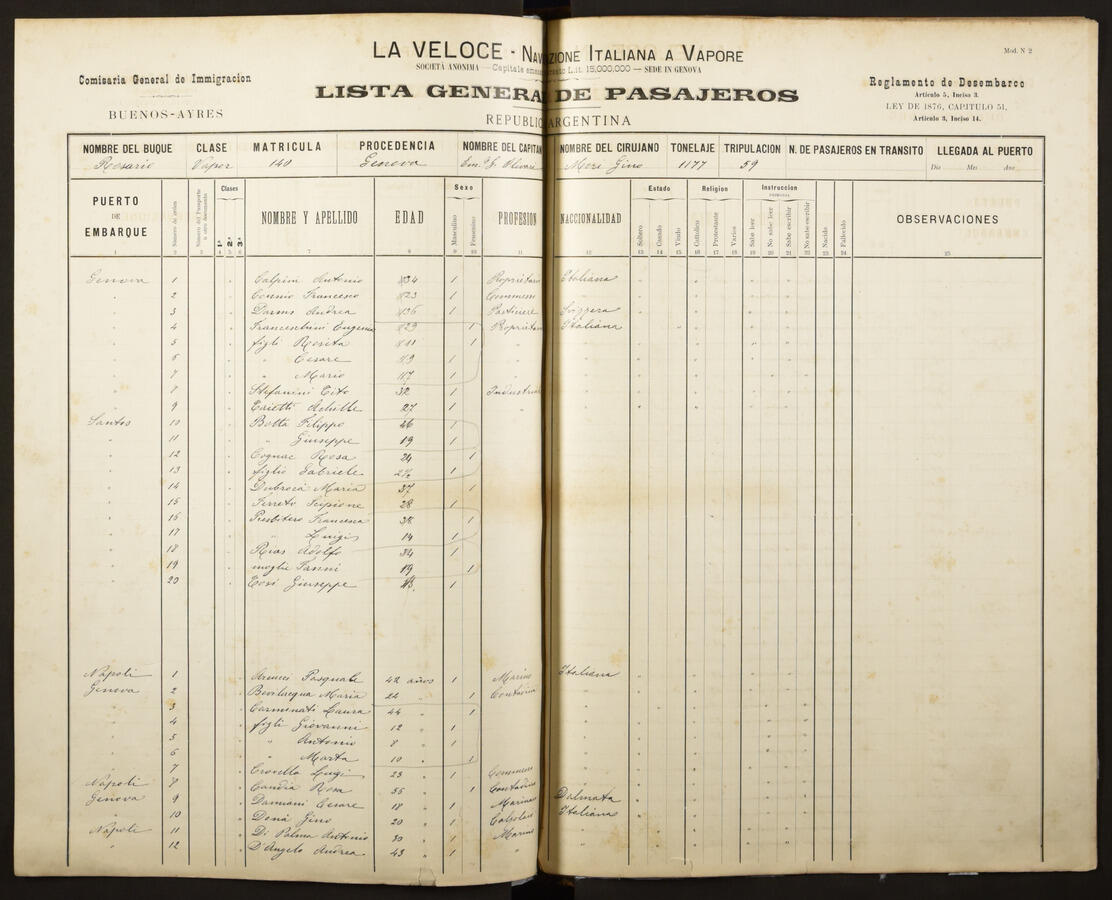 LA VELOCE - NAVIGAZIONE ITALIANA A VAPORE
Mod. N 2
SOCIETÀ ANONIMA — Capitale L.it. 15,000,000 — SEDE IN GENOVA
Comisaria General de Immigracion
BUENOS-AYRES
LISTA GENERAL DE PASAJEROS
REPUBLICA ARGENTINA
Reglamento de Desembarco
Articulo 5, Inciso 3.
LEY DE 1876, CAPITULO 51,
Articulo 3, Inciso 14.
NOMBRE DEL BUQUE CLASE MATRICULA PROCEDENCIA NOMBRE DEL CAPITAN NOMBRE DEL CIRUJANO TONELAJE TRIPULACION N. DE PASAJEROS EN TRANSITO LLEGADA AL PUERTO
Rosario Vapor 140 Genova Olivari Meri Gino 1177 59 Dia Mes Ano
PUERTO DE EMBARQUE Número de orden Clases 1ª 2ª 3ª NOMBRE Y APELLIDO EDAD Sexo Masculino Femenino PROFESION NACCIONALIDAD Estado Soltero Casado Viudo Religion Cattolico Protestante Varios Instruccion PRIMARIA Sabe leer No sabe leer Sabe escribir No sabe escribir Nacido Fallecido OBSERVACIONES
Genova 1 Calpini Antonio 34 1 Proprietario Italiana
" 2 Francesco 23 1 Commesso "
" 3 Darms Andrea 36 1 Svizzera
" 4 Franceschini Eugenia 29 1 Proprietaria Italiana
" 5 figli Rosita 11 1 "
" 6 " Cesare 9 1 "
" 7 " Mario 7 1 "
" 8 Stefanini Tito 32 1 Industriale
" 9 Achille 27 1 "
Santos 10 Botta Filippo 46 1
" 11 " Giuseppe 19 1
" 12 Cognac Rosa 24 1
" 13 figlio Gabriele 2½ 1
" 14 Dubrocà Maria 37 1
" 15 Ferreto Scipione 28 1
" 16 Presbitero Francesca 38 1
" 17 " Luigi 14 1
" 18 Rias Adolfo 34 1
" 19 moglie Fanni 19 1
" 20 Tosi Giuseppe 1
Napoli 1 Pasquale 42 años 1 Marino Italiana
Genova 2 Bevilacqua Maria 24 " 1 Contadina "
" 3 Carminati Laura 44 " 1
" 4 figli Giovanni 12 " 1
" 5 " Antonio 8 " 1
" 6 " Marta 10 " 1
" 7 Crovetto Luigi 23 " 1 Commesso
Napoli 8 Candia Rosa 55 " 1 Contadina
Genova 9 Damiani Cesare 18 " 1 Marino Dalmata
" 10 Donà Gino 20 " 1 Calzolaio Italiana
Napoli 11 Di Palma Antonio 30 " 1 Marino "
" 12 D'Angelo Andrea 43 " 1 " "